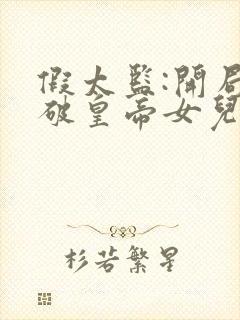 假太監:開局
破皇帝女兒
杉若繁星